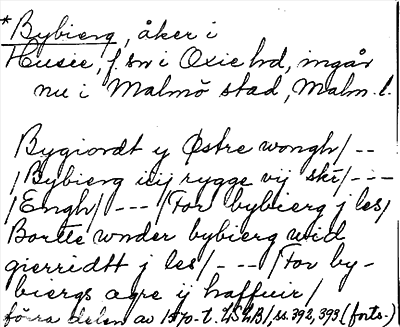 *Bybierg, åker i
Husie, f. sn i Oxie hd, ingår
nu i Malmö stad, Malm. l.
Bygiordt y Østre wongh/ --
/Bybierg iiij rygge vij skr/ ---
/Engh/ --- /For bybierg j les/
Bortte wnder bybierg wid
gierridtt j les/ --- /For by-
biergs agre y haffuir/
förra delen av 1570-t. LSLB1, ss. 392, 393 (forts.)